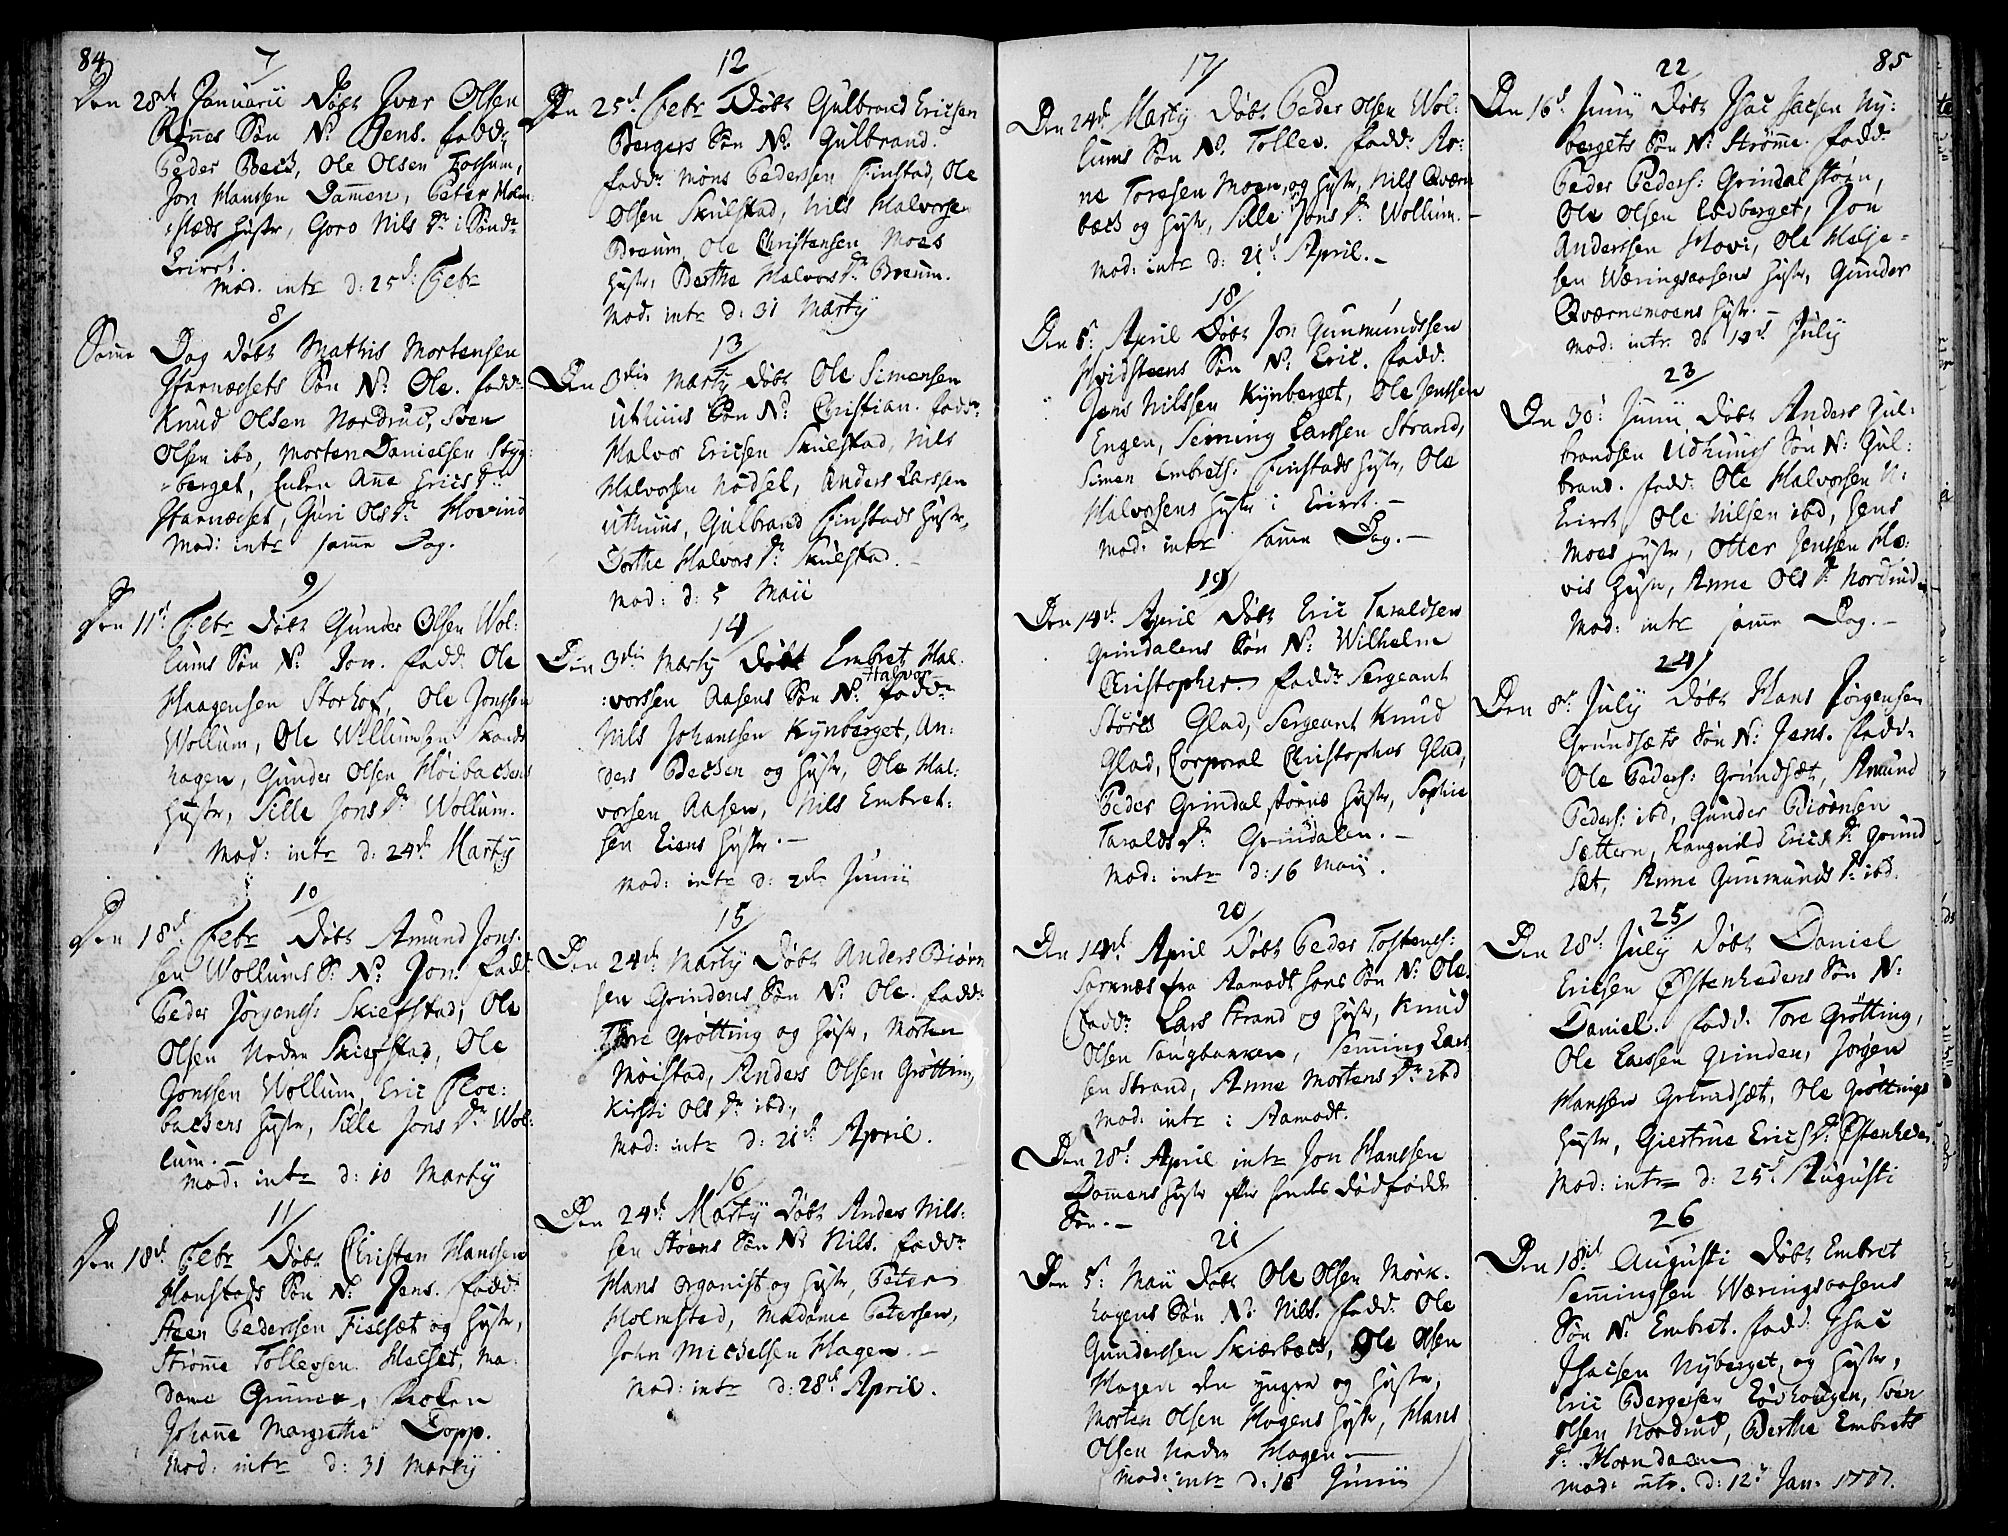 84
7
Den 28de Januarii Døbt Iver Olsen
Rønes Søn N: Jens. fadd:
Peder Beck, Ole Olsen Fossum,
Jon Hanssen Dammen, Peter Holm-
stæds Hustr, Goro Nils Dr i Søndr
Leiret.
Mod. intr d: 25de Febr
8
Samme Dag døbt Mathis Mortensen
Harnæssets Søn N: Ole. fadd:
Knud Olsen Nordrud, Sven
Olsen ibd, Morten Danielsen Styg-
berget, Enken Ane Erics Dr
Harnæsset, Guri Ols Dr Hovind
Mod: intr samme Dag.
9
Den 11de Febr Døbt Gunder Olsen Wol-
lums Søn N: Jon. fadd: Ole
Haagensen Storhov, Ole Jonssen
Wollum, Ole Willumsen Skands
hagen, Gunder Olsen Høibackens
Hustr, Sille Jons Dr Wollum.
Mod: intr d: 24de Martij
10
Den 18de Febr Døbt Amund Jons-
sen Wollums S: N: Jon. Fadd:
Peder Jørgens: Skiefstad, Ole
Olsen Nedre Skiefstad, Ole
Jonssen Wollum, Eric Floe-
backens Hustr, Sille Jons Dr Wol-
lum.
Mod: intr d: 10 Martij
11
Den 18de Febr Døbt Christen Hanssen
Honstads Søn N: Jens. fadd:
Steen Pederssen Fielsæt og Hustr,
Strømme Tollevsen Melset, Ma-
dame Gruner, Frøken
Johanne Margrethe Dopp.
Mod: intr d: 31 Martij
12
Den 25de Febr Døbt Gulbrand Ericsen
Bergers Søn N: Gulbrand.
fadd: Møns Pederssen Finstad, Ole
Olsen Skulstad, Nils Halvorsen
Breum, Ole Christensen Moes
Hustr, Berthe Halvors Dr Breum.
Mod: intr d: 31 Martij
13
Den 3die Martij Døbt Ole Simensen
Uthuus Søn N: Christian. fadd:
Halvor Ericsen Skulstad, Nils
Halvorsen Nødsel, Anders Larssen
Uthuus, Gulbrand Finstads Hustr,
Dorthe Halvors Dr Skulstad.
Mod: d: 5 Maii
14
Den 3die Martij Døbt Embret Hal-
vorssen Aasens Søn N: Halvor fadd:
Nils Johanssen Kynberget, An-
ders Becken og Hustr, Ole Hal-
vorsen Aasen, Nils Embret-
sen Eiens Hustr.
Mod: intr d: 2den Junii
15
Den 24de Martij Døbt Anders Biørn
sen Grindens Søn N: Ole. fadd:
Tore Grøtting og Hustr, Morten
Moistad, Anders Olsen Grøtting,
Kirsti Ols Dr ibd,
Mod: intr d: 21de April.
16
Den 24de Martij Døbt Anders Nils-
sen Støens Søn N: Nils. fadd:
Hans Organist og Hustr, Peter
Holmsted, Madame Petersen,
John Michelsen Hagen.
Mod: intr d: 28de April.
17
Den 24de Martij Døbt Peder Olsen Wol-
lums Søn N: Tollev. fadd: Ar-
ne Toresen Moen, og Hustr, Nils Qværn
bæck og Hustr, Sille Jons Dr Wollum.
Mod: intr d: 21de April.
18
Den 5: April Døbt Jon Gunmundssen
Hvidsteens Søn N: Eric. fadd:
Jens Nilssen Kynberget, Ole Jenssen
Engen, Semming Larssen Strand,
Simen Embrets: Finstads Hustr, Ole
Halvorsens Hustr i Leiret.
Mod: intr samme Dag.
19
Den 14de April Døbt Eric Taraldsen
Grindalens Søn N: Wilhelm
Christopher. fadd: Sergeant
Glad, Sergeant Knud
Glad, Corporal Christopher Glad,
Peder Grindal størns Hustr, Sophie
Taralds Dr Grindalen.
Mod: intr d: 16 Maij.
20
Den 14de April Døbt Peder Tostens:
Sornæs fra Aamodt hans Søn N: Ole.
Fadd: Lars Strand og Hustr, Knud
Olsen Saugbacken, Semming Lars-
sen Strand, Anne Mortens Dr ibd
Mod: intr i Aamodt.
Den 28de April intr Jon Hanssen
Dammens Hustr efter hendes dødfødde
Søn.
21
Den 5: Maii Døbt Ole Olsen Mørk-
hagens Søn N: Nils. fadd: Ole
Gunderssen Skiærbeck, Ole Olsen
Hagen den yngre og Hustr,
Morten Olsen Hogens Hustr, Hans
Olsen Nedre Hagen.
Mod: intr d: 16 Junii
85
22
Den 16de Junij Døbt Isac Isacsen Ny-
bergets Søn N: Strømme. fadd:
Peder Peders: Grindalstøen,
Ole Olsen Lødberget, Jon
Anderssen Hovi, Ole Helje-
sen Wæringsaasens Hustr, Gunder
Qværnemoens Hustr.
Mod: intr. d: 14de Julij
23
Den 30: Junii Døbt Anders Gul-
brandsen Udhuus Søn N: Gul-
brand. fadd: Ole Halvorsen N:
Leiret, Ole Nilsen ibd, Jens
Moes Hustr, Otter Jenssen Ho-
vis Hustr, Anne Ols Dr Nordrud
Mod: intr samme Dag.
24
Den 8de Julij Døbt Hans Jørgensen
Grundsæts Søn N: Jens. fadd:
Ole Peders: Grundsæt, Amund
Peders: ibd, Gunder Biørnsen
Sættern, Rangnild Erics Dr Grund
sæt, Anne Gunmunds Dr ibd.
25
Den 28de Julij Døbt Daniel
Ericsen Østenhedens Søn N:
Daniel. fadd: Tore Grøtting,
Ole Larssen Grinden, Jørgen
Hanssen Grundsæt, Ole Grøttings
Hustr, Giertrue Erics Dr Østenheden.
Mod: intr d: 25de Augusti
26
Den 18de Augusti Døbt Embret
Semmingsen Wæringsaasens
Søn N: Embret. fadd: Isac
Isacsen Nyberget, og Hustr,
Eric Bergersen Lødhougen, Sven
Olsen Nordrud, Berthe Embrets
Dr Horndalen
Mod: intr. d: 12: Jan. 1777.